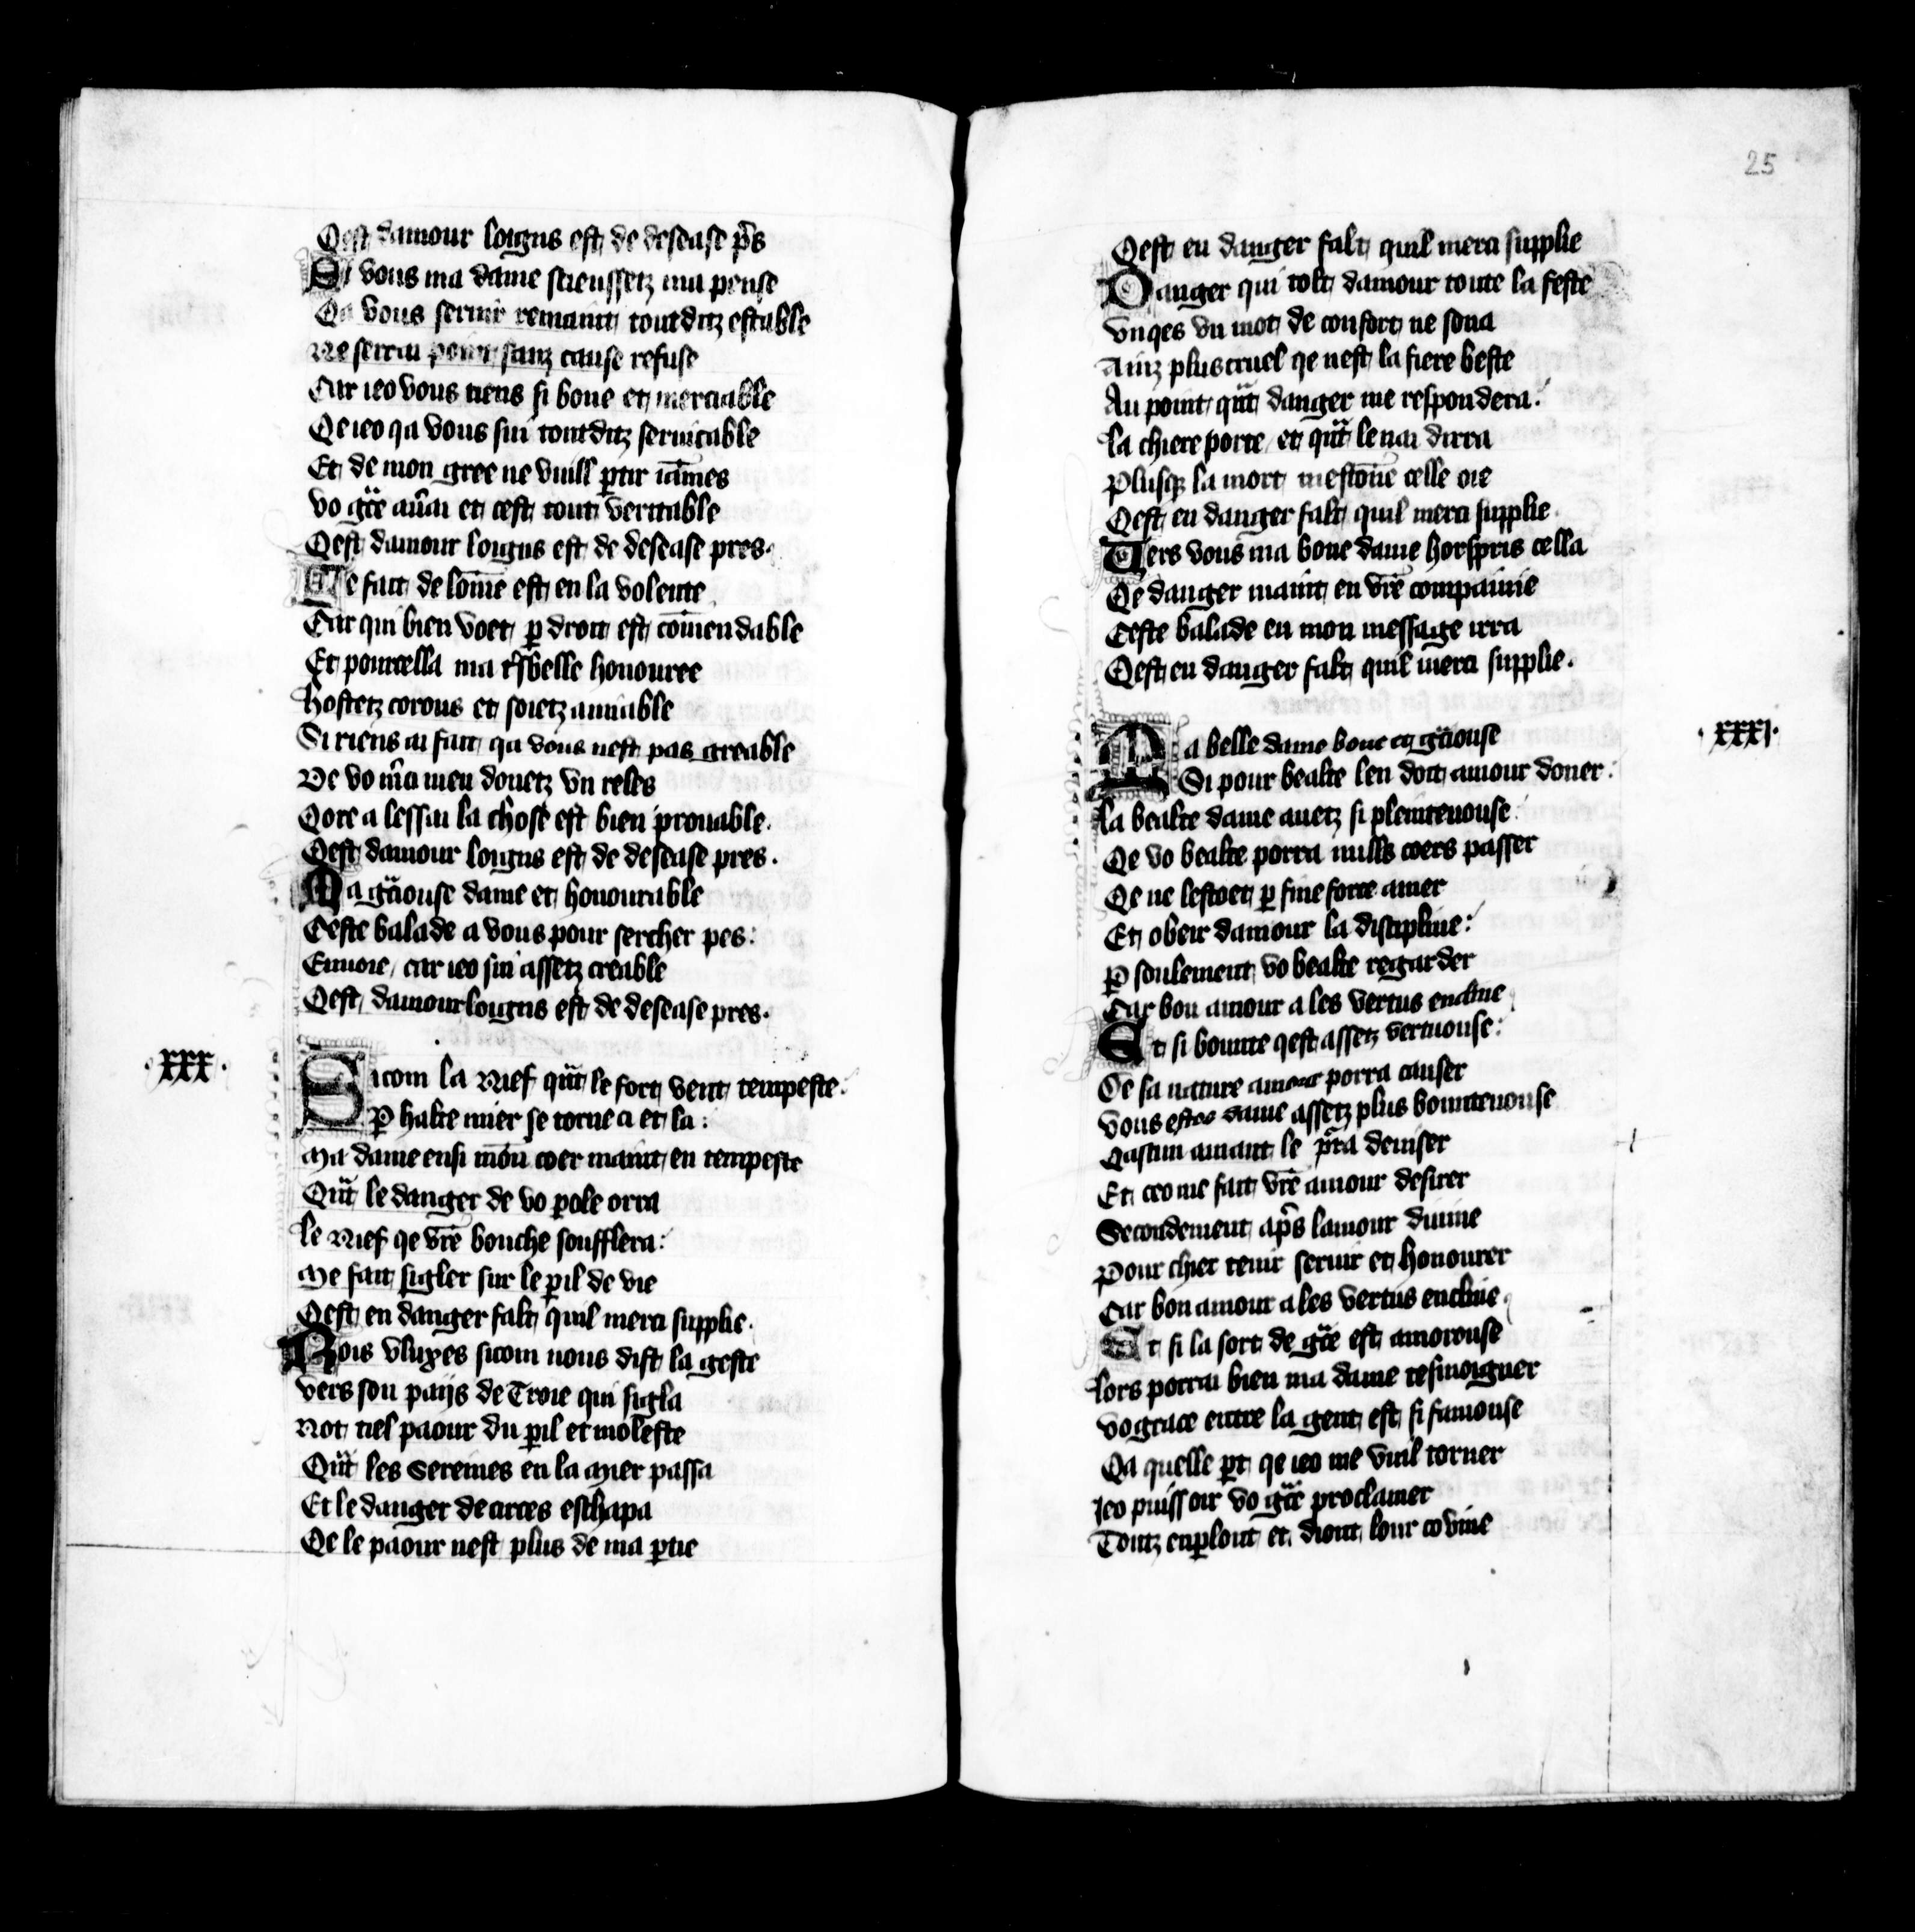 Qest damour loigns est de desease p̄s
Si vous ma dame scieussetz ma pense
Qa vous servir remaint toutditz estable
Ne serrai point sanz cause refuse
Car ieo vous tiens si bone et merciable
Qe ieo qa vous sui toutditz servicable
Et de mon gree ne vuill ꝑtir iam̄es
Vo gͣce aūai et cest tout veritable
Qest damour loigns est de desease pres.
Le fait de lom̄e est en la volente
Car qui bien voet ꝑ droit est com̄endable
Et pourcella ma tsbelle honouree
Hostetz corous et soietz amiable
Si riens ai fait qa vous nest pas greable
De vo m̄ci men donetz vn reles
Qore a lessai la chose est bien provable.
Qest damour loigns est de desease pres.
Ma gͣciouse dame et honourable
Ceste balade a vous pour sercher pes:
Envoie, car ieo sui assetz creable
Qest damour loigns est de desease pres.
.XXX.
Sicom la Nief qͣnt le fort vent tempeste.
Ꝑ halte mier se torne ci et la:
Ma dame ensi mon coer maint en tempeste
Qͣnt le danger de vo ꝑole orra
Le Nief qe vr̄e bouche soufflera:
Me fait sigler sur le ꝑil de vie
Qest en danger falt quil merci supplie.
Rois Vluxes sicom nous dist la geste
Vers son paijs de Troie qui sigla
Not tiel paour du ꝑil et moleste
Qͣnt les Sereines en la Mier passa
Et le danger de circes eschapa
Qe le paour nest plus de ma ꝑtie
25
Qest en danger falt quil merci supplie
Danger qui tolt damour toute la feste
Vnqes vn mot de confort ne sona
Ainz plus cruel qe nest la fiere beste
Au point qͣnt danger me respondera:
La chiere porte, et qͣnt le nai dirra
Plusqꝫ la mort mestone celle oie
Qest en danger falt quil merci supplie.
Vers vous ma bone dame horspris cella
Qe danger maint en vr̄e compainie
Ceste balade en mon message irra
Qest en danger falt quil merci supplie.
.XXXI.
Ma belle dame bone et gͣciouse
Si pour bealte len doit amour doner:
La bealte dame avetz si plentevouse:
Qe vo bealte porra nulls coers passer
Qe ne lestoet ꝑ fine force amer
Et obeir damour la discipline:
Ꝑ soulement vo bealte regarder
Car bon amour a les vertus encline
Et si bounte qest assetz vertuouse:
De sa nature amour porra causer
Vous estes dame assetz plus bountevouse
Qascun amant le pͦra deviser
Et ceo me fait vr̄e amour desirer
Secondement ap̄s lamour divine
Pour chier tenir servir et honourer
Car bon amour a les vertus encline.
Et si la sort de gͣce est amorouse
Lors porrai bien ma dame tesmoigner
Vo grace entre la gent est si famouse
Qa quelle ꝑt qe ieo me vuil torner
Jeo puiss oir vo gͣce proclamer
Toutz enꝑlont et diont lour covine